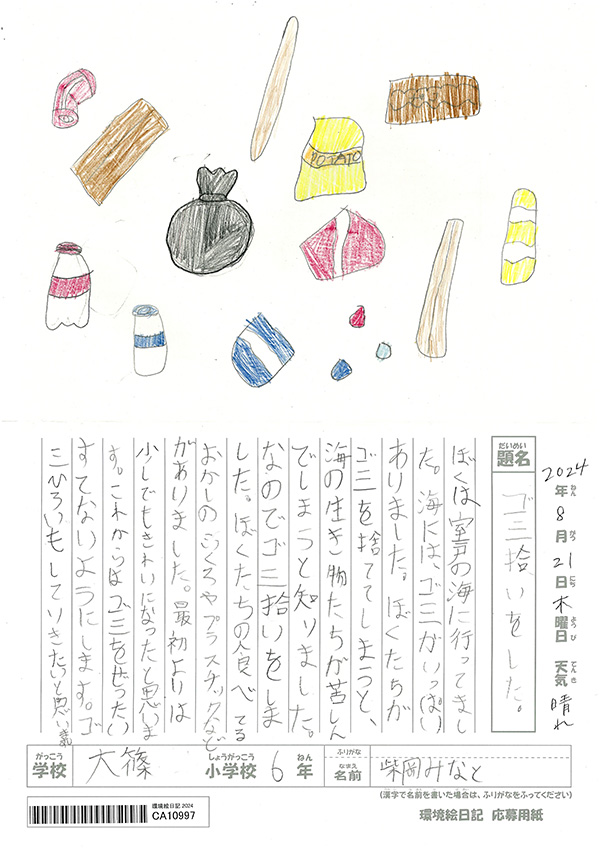 POTATO
2024年8月21日木曜日 天気晴れ
ねん がつ にち ようび てんき
だいめい
題名
ゴミ拾いをした。
ぼくは室戸の海に行ってまし
た。海には、ゴミがいっぱい
ありました。ぼくたちが
ゴミを捨ててしまうと、
海の生き物たちが苦しん
でしまうと知りました。
なのでゴミ拾いをしま
した。ぼくたちの食べてる
おかしのふくろやプラスチックなど
がありました。最初よりは
少しでもきれいになったと思いま
す。これからはゴミをぜったい
すてないようにします。ゴ
ミひろいもしていきたいと思います
がっこう しょうがっこう ねん
学校 大篠 小学校 6年
ふりがな
なまえ
名前 柴岡みなと
(漢字で名前を書いた場合は、ふりがなをふってください)
環境絵日記2024
CA10997
環境絵日記 応募用紙